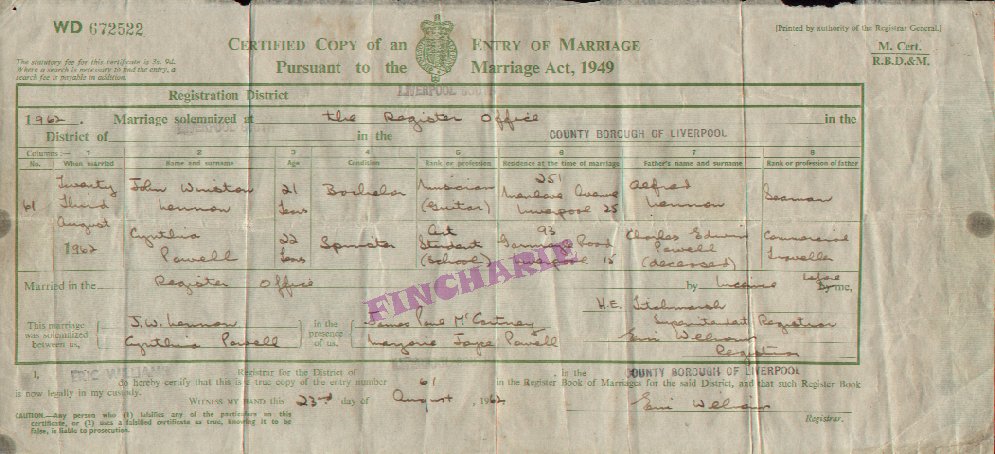 WD 672522
[Printed by authority of the Registrar General.]
CERTIFIED COPY OF AN ENTRY OF MARRIAGE
Pursuant to the Marriage Act, 1949
M. Cert.
R.B.D.&M.
The statutory fee for this certificate is 3s. 9d.
Where a search is necessary to find the entry, a
search fee is payable in addition.
LIVERPOOL SOUTH
Registration District
1962. Marriage solemnized at the Register Office in the
LIVERPOOL SOUTH
District of in the COUNTY BOROUGH OF LIVERPOOL
Columns:— 1 2 3 4 5 6 7 8
No. When married Name and surname Age Condition Rank or profession Residence at the time of marriage Father's name and surname Rank or profession of father
61
Twenty
Third
August
1962
John Winston
Lennon
21
Years
Bachelor
Musician
(Guitar)
251
Menlove Avenue
Liverpool 25
Alfred
Lennon
Seaman
Cynthia
Powell
22
Years
Spinster
Art
Student
(School)
93
Road
Liverpool 15
Charles Edwin
Powell
(deceased)
Commercial
Traveller
Married in the Register Office by licence before me,
by
This marriage
was solemnized
between us,
J.W. Lennon
Cynthia Powell
in the
presence
of us,
James Paul McCartney
Marjorie Powell
H.E.
Superintendent Registrar
Registrar
FINCHARIE
I, ERIC WILLIAMS Registrar for the District of , in the COUNTY BOROUGH OF LIVERPOOL
do hereby certify that this is a true copy of the entry number 61 in the Register Book of Marriages for the said District, and that such Register Book
is now legally in my custody.
WITNESS MY HAND this 23rd day of August, 1962
Registrar.
CAUTION.—Any person who (1) falsifies any of the particulars on this
certificate, or (1) uses a falsified certificate as true, knowing it to be
false, is liable to prosecution.